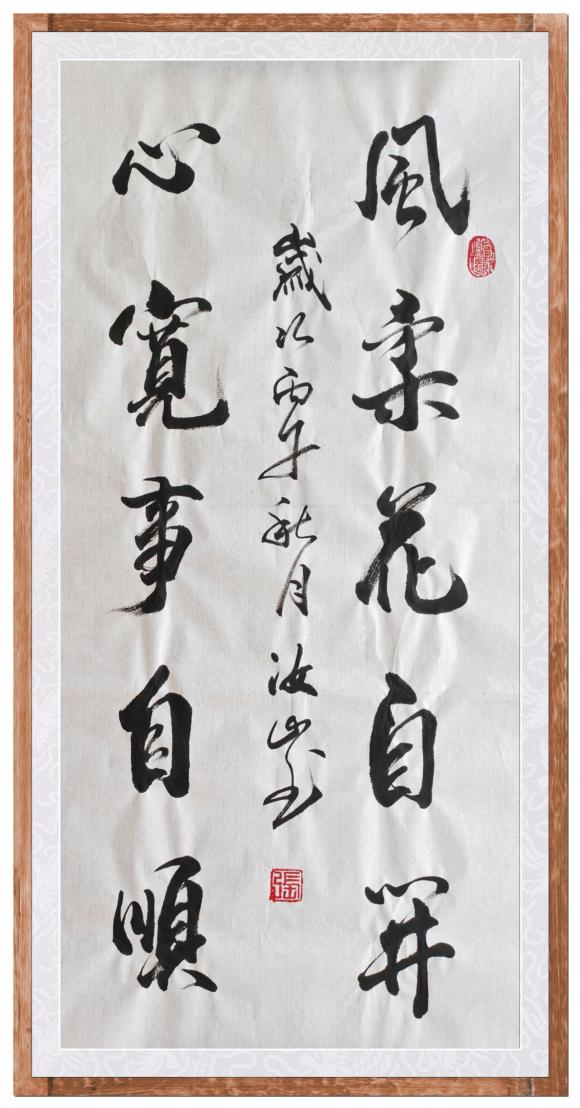 風柔花自開
歲次丙午秋月汝山書
心寬事自順
張